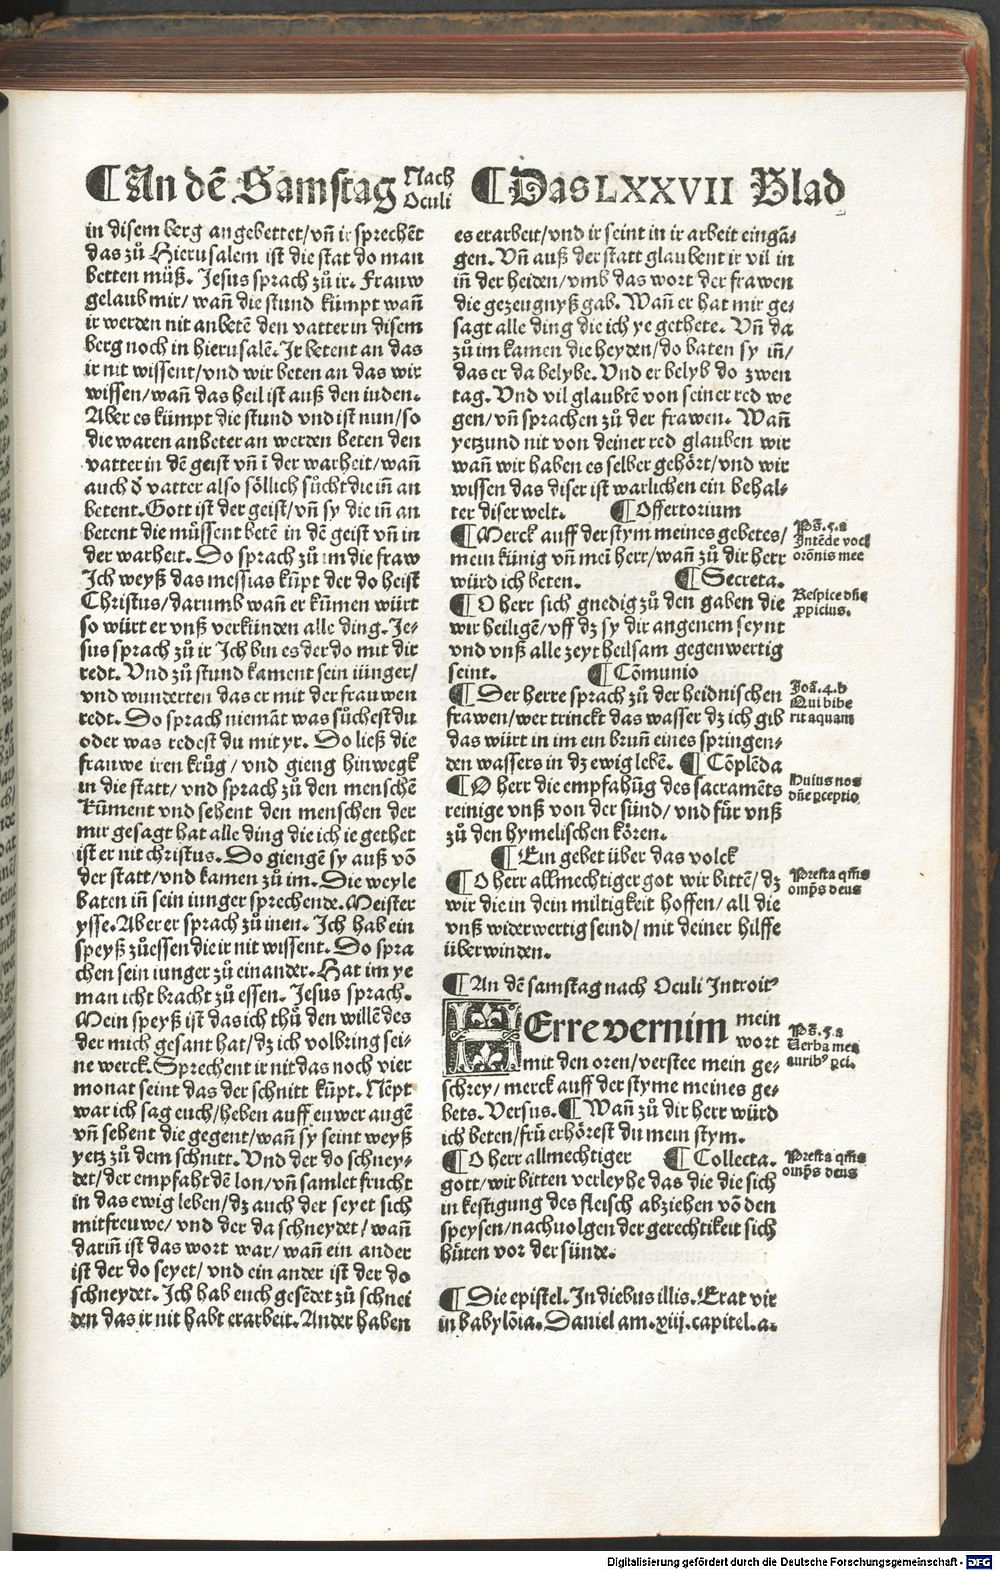 ¶An dē Samstag Nach Oculi
¶Das LXXVII Blad
in disem berg angebettet/vn̄ ir sprechēt
das zů Hierusalem ist die stat do man
betten můß. Jesus sprach zů ir. Frauw
gelaub mir/ wan̄ die stund kūmpt wan̄
ir werden nit anbetē den vatter in disem
berg noch in hierusalē. Ir betent an das
ir nit wissent/vnd wir beten an das wir
wissen/wan̄ das heil ist auß den iuden.
Aber es kūmpt die stund vnd ist nun/so
die waren anbeter an werden beten den
vatter in dē geist vn̄ ī der warheit/wan̄
auch d̄ vatter also söllich sůcht die in̄ an
betent. Gott ist der geist/vn̄ sy die in̄ an
betent die můssent betē in dē geist vn̄ in
der warheit. Do sprach zů im die fraw
Ich weyß das messias kūpt der do heist
Christus/darumb wan̄ er kūmen würt
so würt er vnß verkünden alle ding. Je-
sus sprach zů ir Ich bin es der do mit dir
redt. Vnd zů stund kament sein iünger/
vnd wunderten das er mit der frauwen
redt. Do sprach niemāt was sůchest du
oder was redest du mit yr. Do ließ die
frauwe iren krůg/ vnd gieng hinwegk
in die statt/ vnd sprach zů den menschē
Kūment vnd sehent den menschen der
mir gesagt hat alle ding die ich ie gethet
ist er nit christus. Do giengē sy auß vō
der statt/vnd kamen zů im. Die weyle
baten in̄ sein iunger sprechende. Meister
ysse. Aber er sprach zů inen. Ich hab ein
speyß zůessen die ir nit wissent. Do spra
chen sein iunger zů einander. Hat im ye
man icht bracht zů essen. Jesus sprach.
Mein speyß ist das ich thů den willē des
der mich gesant hat/dz ich volbring sei-
ne werck. Sprechent ir nit das noch vier
monat seint das der schnitt kūpt. Nēpt
war ich sag euch/heben auff euwer augē
vn̄ sehent die gegent/wan̄ sy seint weyß
yetz zů dem schnitt. Vnd der do schney-
det/der empfaht dē lon/vn̄ samlet frucht
in das ewig leben/dz auch der seyet sich
mitfreuwe/vnd der da schneydet/wan̄
darin̄ ist das wort war/wan̄ ein ander
ist der do seyet/ vnd ein ander ist der do
schneydet. Ich hab euch gesēdet zů schnei
den das ir nit habt erarbeit. Ander haben
es erarbeit/vnd ir seint in ir arbeit eingā-
gen. Vn̄ auß der statt glaubent ir vil in
in̄ der heiden/vmb das wort der frawen
die gezeugnyß gab. Wan̄ er hat mir ge-
sagt alle ding die ich ye gethete. Vn̄ da
zů im kamen die heyden/do baten sy in̄/
das er da belybe. Vnd er belyb do zwen
tag. Vnd vil glaubtē von seiner red we
gen/vn̄ sprachen zů der frawen. Wan̄
yetzund nit von deiner red glauben wir
wan̄ wir haben es selber gehört/vnd wir
wissen das diser ist warlichen ein behal-
ter diser welt. ¶Offertorium
¶Merck auff der stym meines gebetes/
mein künig vn̄ mei̅ herr/wan̄ zů dir herr
würd ich beten. ¶Secreta.
¶O herr sich gnedig zů den gaben die
wir heiligē/vff dz sy dir angenem seynt
vnd vnß alle zeyt heilsam gegenwertig
seint. ¶Cōmunio
¶Der herre sprach zů der heidnischen
frawen/wer trinckt das wasser dz ich gib
das würt in im ein brun̄ eines springen-
den wassers in dz ewig lebē. ¶Cōplēda
¶O herr die empfahūg des sacramēts
reinige vnß von der sünd/ vnd für vnß
zů den hymelischen kören.
¶Ein gebet über das volck
¶O herr allmechtiger got wir bittē/dz
wir die in dein miltigkeit hoffen/ all die
vnß widerwertig seind/ mit deiner hilffe
überwinden.
¶An dē samstag nach Oculi Introit⁹
HErre vernim mein wort
mit den oren/verstee mein ge-
schrey/ merck auff der styme meines ge-
bets. Versus. ¶Wan̄ zů dir herr würd
ich beten/frü erhörest du mein stym.
¶O herr allmechtiger ¶Collecta.
gott/wir bitten verleyhe das die die sich
in kestigung des fleisch abziehen vō den
speysen/nachuolgen der gerechtikeit sich
hüten vor der sünde.
¶Die epistel. In diebus illis. Erat vir
in babylōia. Daniel am .xiij. capitel. a.
Ps̄. 5. a
Intēde voci
orōnis mee
Respice dn̄e
ꝓpicius.
Joā. 4. b
Qui bibe
rit aquam
Huius nos
dn̄e ꝑceptio
Presta qm̄s
omp̄s deus
Ps̄. 5. a
Verba mea
aurib⁹ ꝑci.
Presta qm̄s
omp̄s deus
Digitalisierung gefördert durch die Deutsche Forschungsgemeinschaft - DFG